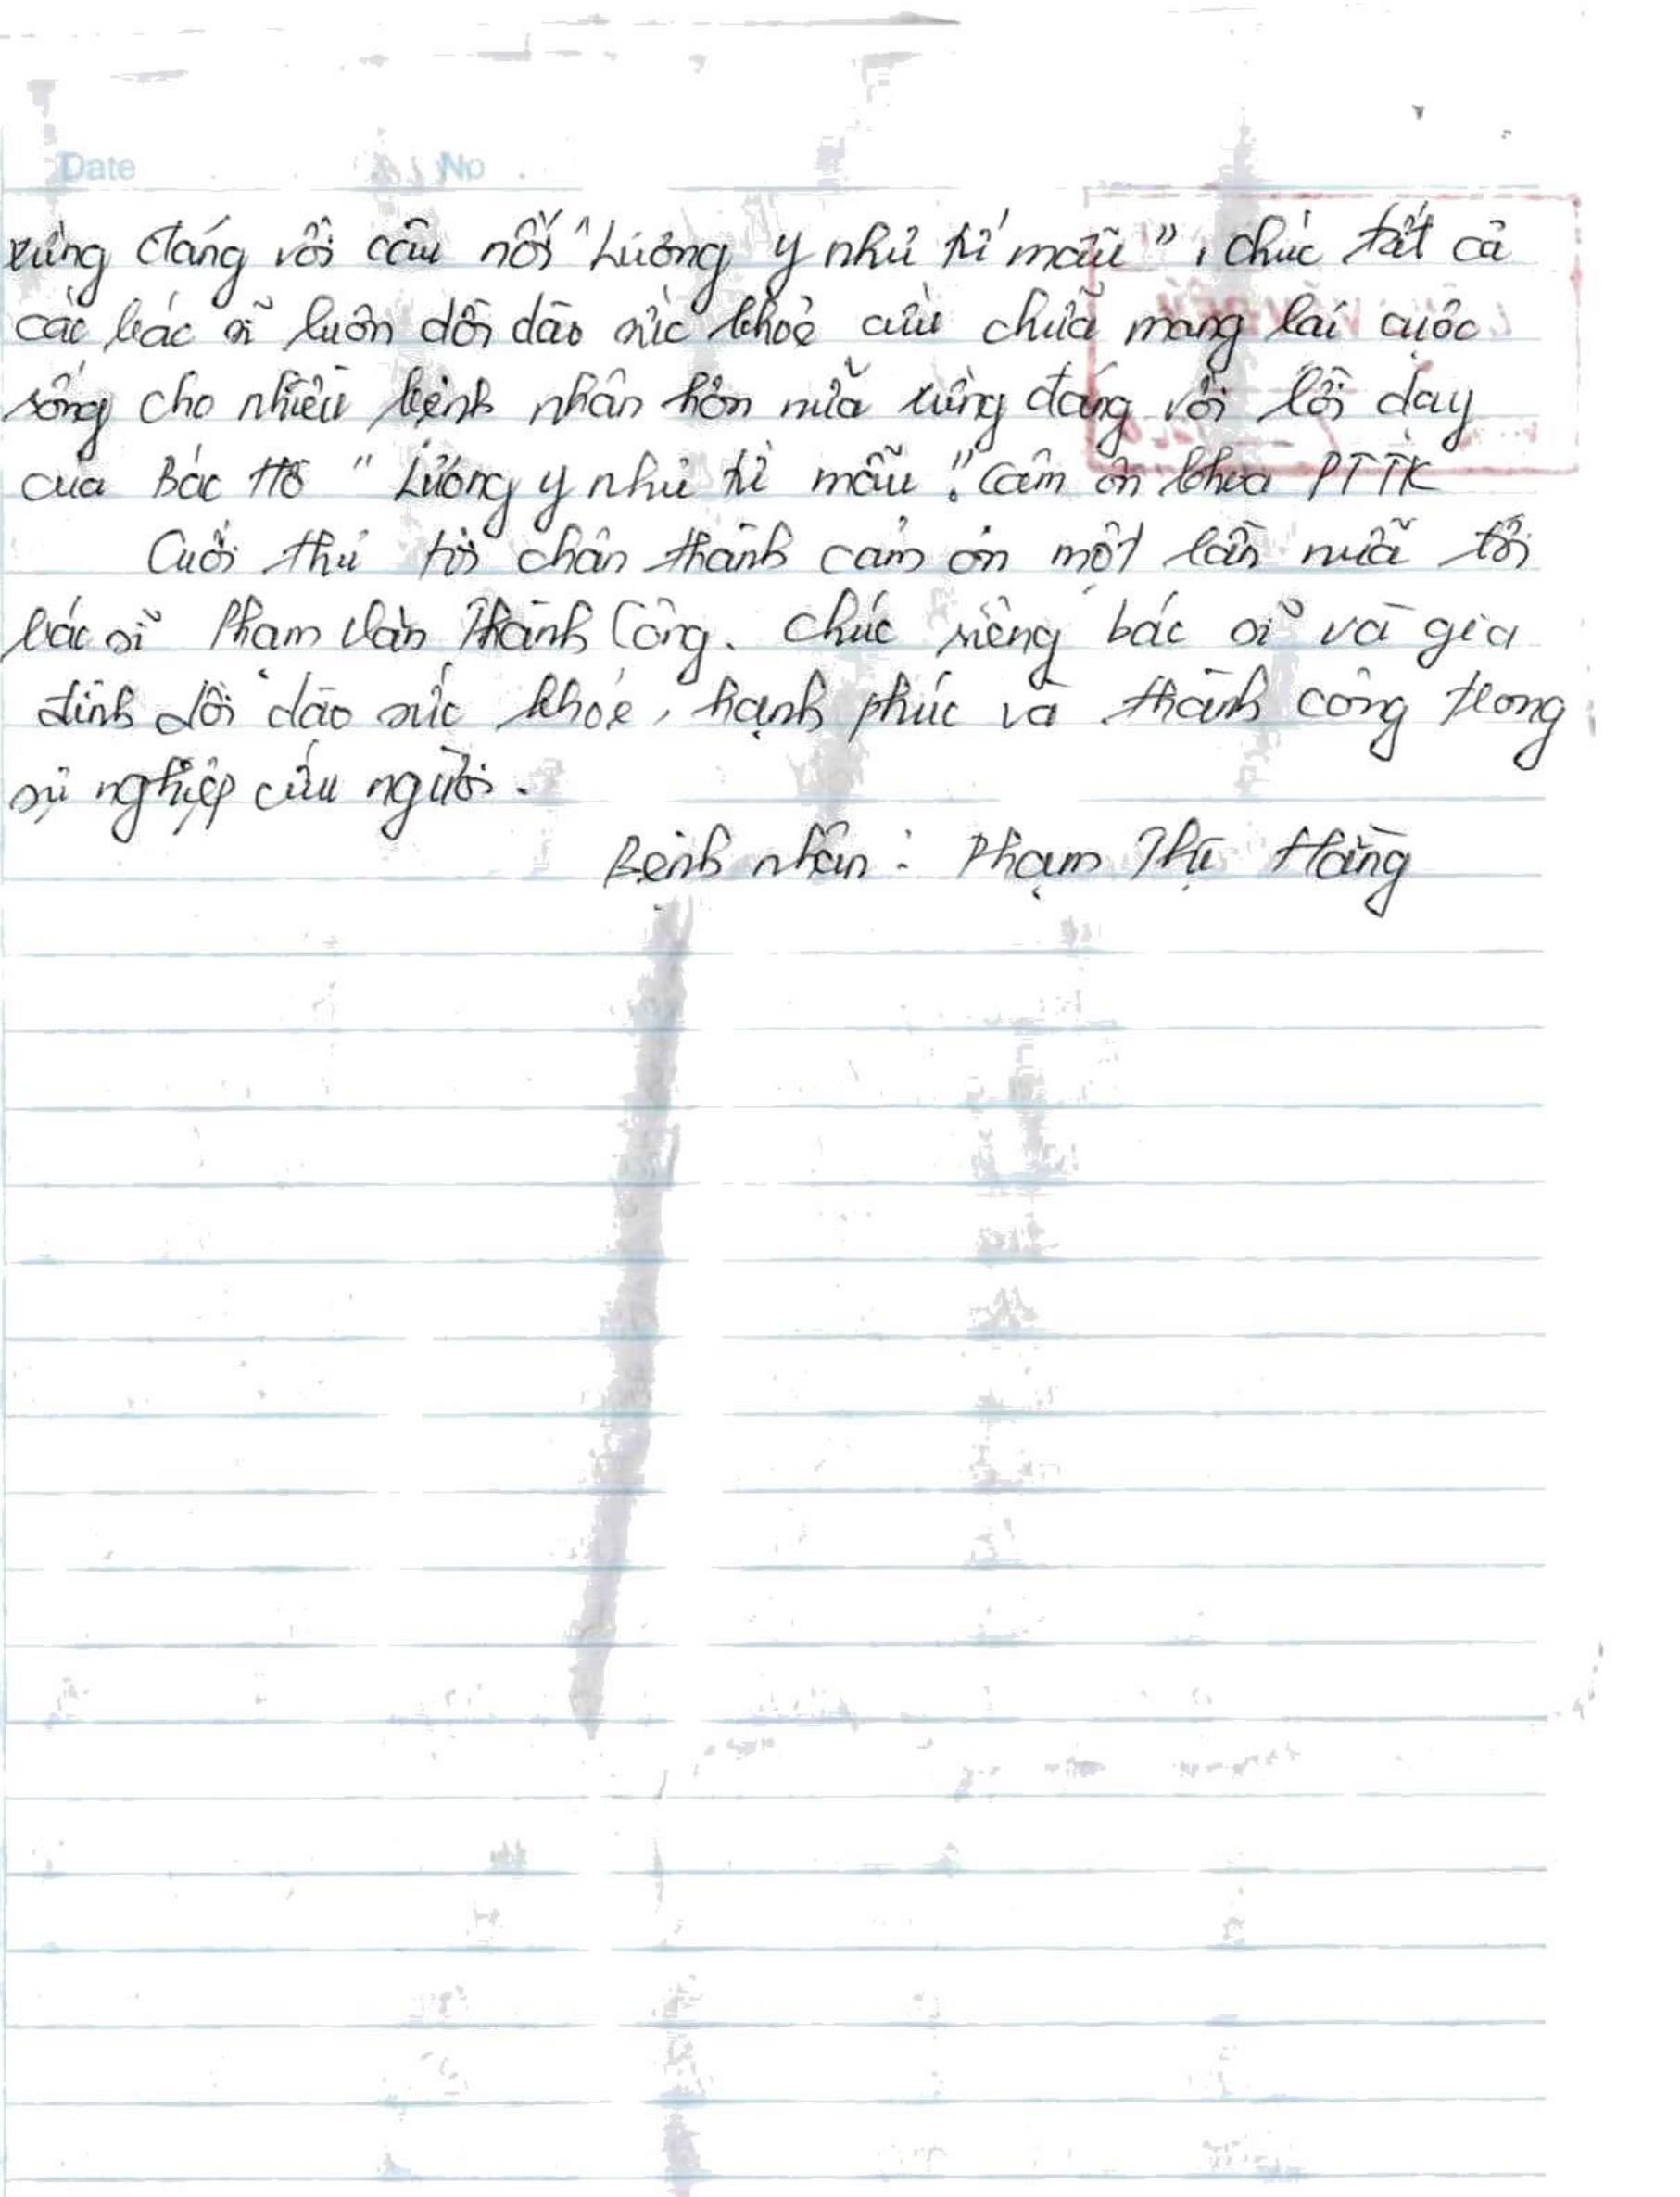 Date No
xứng đáng với câu nói "Lương y như từ mẫu", chúc tất cả
các bác sĩ luôn dồi dào sức khoẻ cứu chữa mang lại cuộc
sống cho nhiều bệnh nhân hơn nữa xứng đáng với lời dạy
của Bác Hồ "Lương y như từ mẫu". Cảm ơn khoa PTTK
Cuối thư tôi chân thành cảm ơn một lần nữa tới
bác sĩ Phạm Văn Thành Công. Chúc riêng bác sĩ và gia
đình dồi dào sức khoẻ, hạnh phúc và thành công trong
sự nghiệp cứu người.
Bệnh nhân: Phạm Thị Hằng